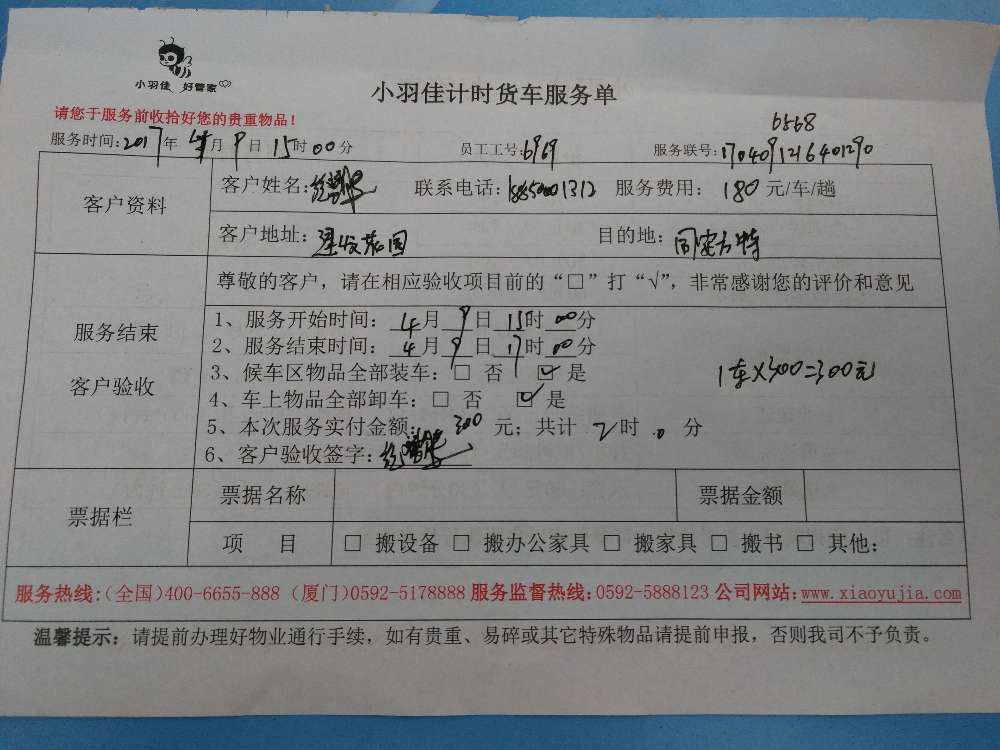 小羽佳 好管家
小羽佳计时货车服务单
请您于服务前收拾好您的贵重物品！
6568
服务时间:2017年4月9日15时00分 员工工号:6969 服务联号:1704091216401290
客户资料
客户姓名: 联系电话: 服务费用: 180元/车/趟
客户地址:建发花园 目的地:同安方特
尊敬的客户，请在相应验收项目前的“□”打“√”，非常感谢您的评价和意见
服务结束
客户验收
1、服务开始时间: 4月9日15时00分
2、服务结束时间: 4月9日17时00分
3、候车区物品全部装车:□ 否 ☑ 是
1车×300=300元
4、车上物品全部卸车:□ 否 ☑ 是
5、本次服务实付金额: 300 元；共计 2时 0 分
6、客户验收签字:
票据栏
票据名称 票据金额
项 目 □ 搬设备 □ 搬办公家具 □ 搬家具 □ 搬书 □ 其他:
服务热线:(全国)400-6655-888 (厦门)0592-5178888 服务监督热线:0592-5888123 公司网站:www.xiaoyujia.com
温馨提示: 请提前办理好物业通行手续，如有贵重、易碎或其它特殊物品请提前申报，否则我司不予负责。